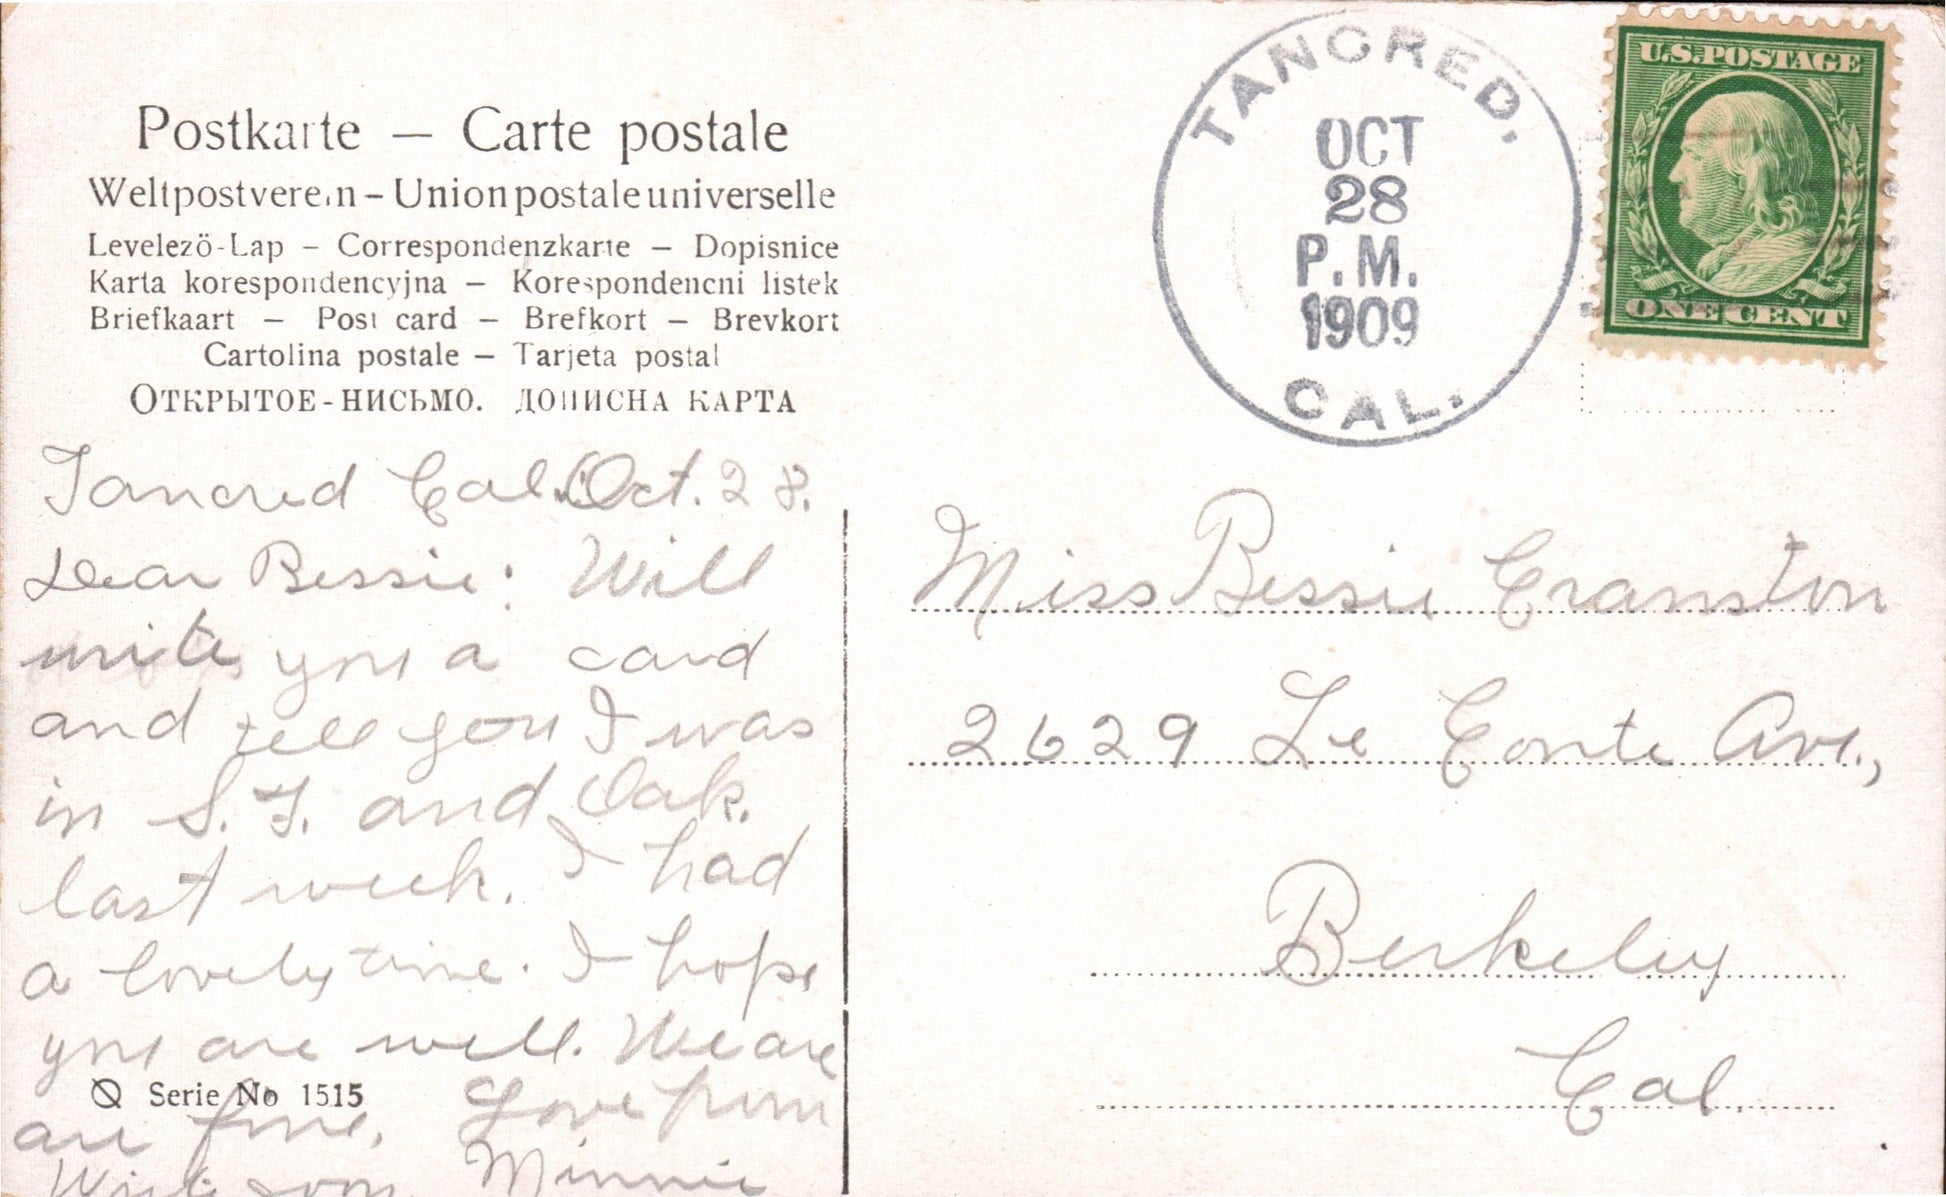 Postkarte — Carte postale
Weltpostverein – Union postale universelle
Levelező-Lap – Correspondenzkarte – Dopisnice
Karta korespondencyjna – Korespondencni listek
Briefkaart – Post card – Brefkort – Brevkort
Cartolina postale – Tarjeta postal
ОТКРЫТОЕ-НИСЬМО. ДОПИСНА КАРТА
TANCRED,
OCT
28
P.M.
1909
CAL.
U.S. POSTAGE
ONE CENT
Tancred Cal. Oct. 28.
Dear Bessie: Will
write you a card
and tell you I was
in S. F. and Oak.
last week. I had
a lovely time. I hope
you are well. We are
Serie No 1515
are fine. Love from
Write soon. Minnie
Miss Bessie Cranston
2629 Le Conte Ave.,
Berkeley
Cal.